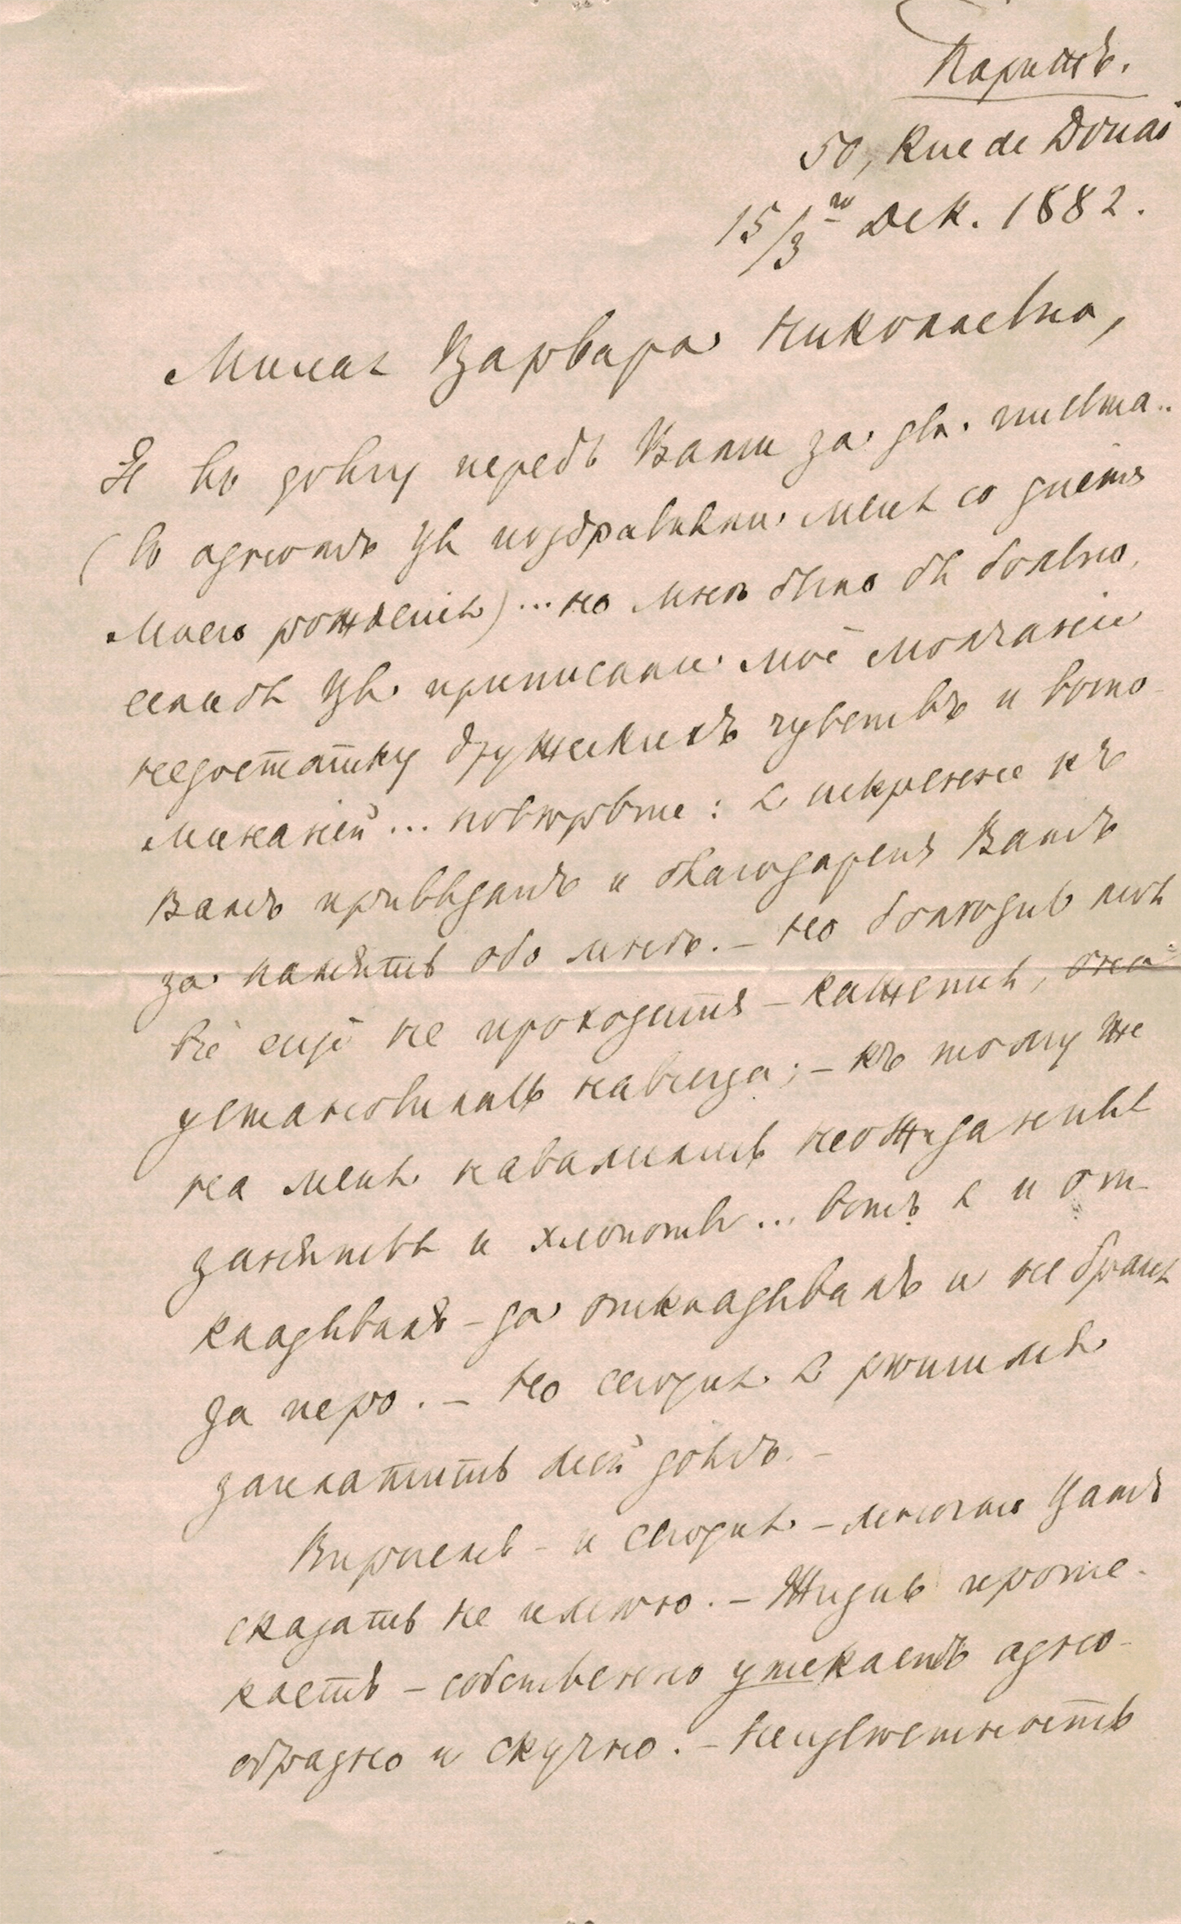 Парижъ.
50, Rue de Douai
15/3го Дек. 1882.
Милая Варвара Николаевна,
Я въ долгу передъ Вами за два письма..
(въ одномъ Вы поздравляли меня со днёмъ
моего рожденія)... но мнѣ было бы больно,
еслибъ Вы приписали моё молчаніе
недостатку дружескихъ чувствъ и воспо-
минаній... повѣрьте: я искренно къ
Вамъ привязанъ и благодаренъ Вамъ
за память обо мнѣ. – Но болѣзнь моя
всё ещё не проходитъ – кажется, она
установилась навсегда; – къ тому же
на меня навалились неожиданныя
занятья и хлопоты... вотъ я и от-
кладывалъ – да откладывалъ и не брался
за перо. – Но сегодня я рѣшился
заплатить мой долгъ. –
Впрочемъ – и сегодня – многаго Вамъ
сказать не имѣю. – Жизнь проте-
каетъ – собственно утекаетъ одно-
образно и скучно. – Неизвѣстность